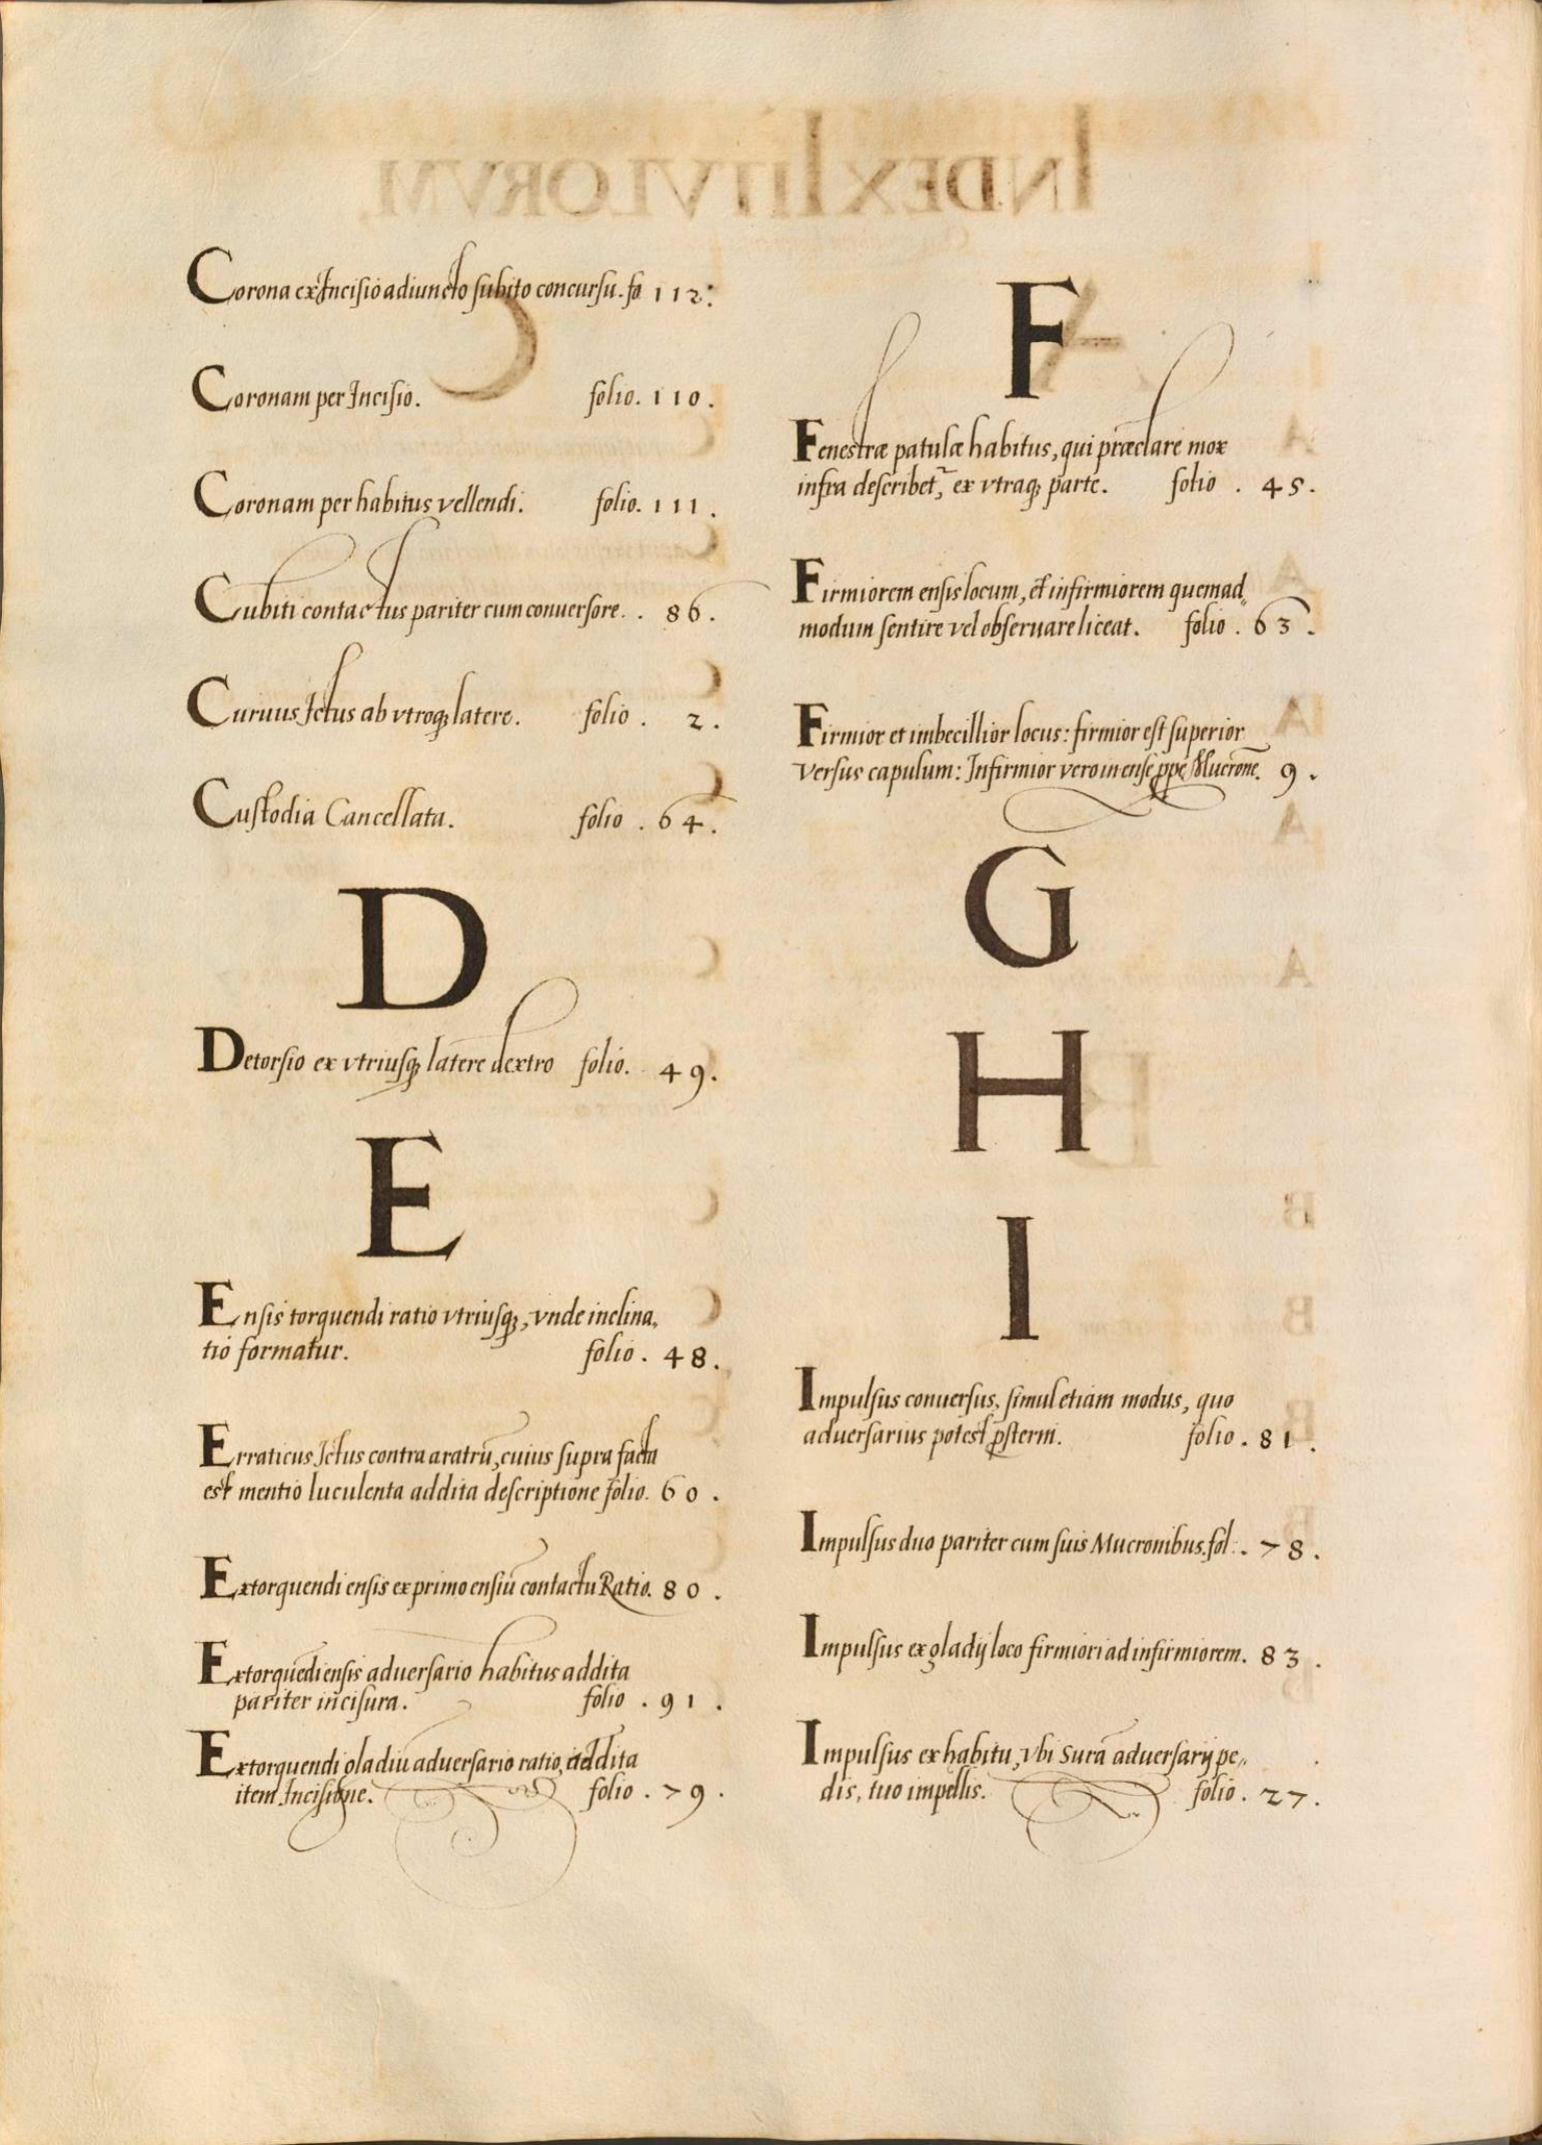 Corona ex Incisiō adiuncto subito concursu. fo 112.
Coronam per Incisio. folio. 110.
Coronam per habitus vellendi. folio. 111.
Cubiti contactus pariter cum conuersore. . 86.
Curuus Ictus ab vtroqꝫ latere. folio . 2.
Custodia Cancellata. folio . 64.
D
Detorsio ex vtriusqꝫ latere dextro folio. 49.
E
Ensis torquendi ratio vtriusqꝫ, vnde inclina,
tio formatur. folio . 48.
Erraticus Ictus contra aratrū, cuius supra facta
est mentio luculenta addita descriptione folio. 60 .
Extorquendi ensis ex primo ensiū contactu Ratio. 80 .
Extorquēdi ensis aduersario habitus addita
pariter incisura. folio . 91 .
Extorquendi gladiū aduersario ratio, addita
item Incisione. folio . 79 .
F
Fenestræ patulæ habitus, qui præclare mox
infra describet᷑, ex vtraqꝫ parte. folio . 45.
Firmiorem ensis locum, et infirmiorem quemad„
modum sentire vel obseruare liceat. folio . 63 .
Firmior et imbecillior locus: firmior est superior
versus capulum: Infirmior vero in ense ꝓpe Mucrone. 9 .
G
H
I
Impulsus conuersus, simul etiam modus, quo
aduersarius potest ꝓsterni. folio . 81 .
Impulsus duo pariter cum suis Mucronibus. fol: . 78 .
Impulsus ex gladij loco firmiori ad infirmiorem. 83 .
Impulsus ex habitu, vbi Surā aduersarij pe„
dis, tuo impellis. folio . 27.